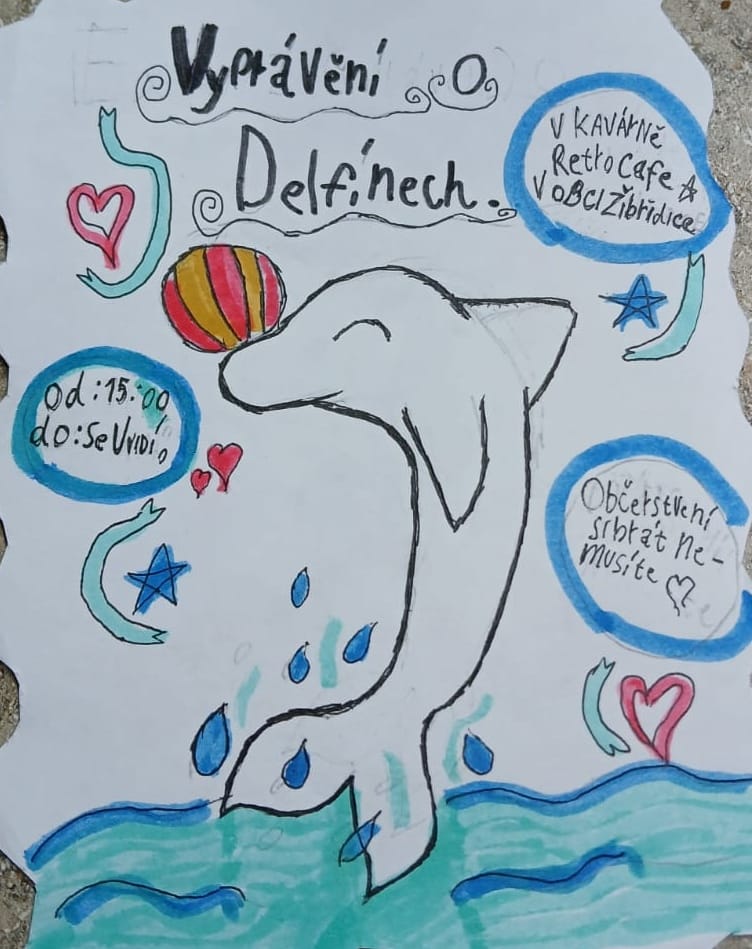 Vyprávění o
Delfínech.
V KAVÁRNĚ
Retro Cafe
V OBCI Žibřidice
Od: 15:00
do: se Uvidí
Občerstvení
sibrát ne-
musíte